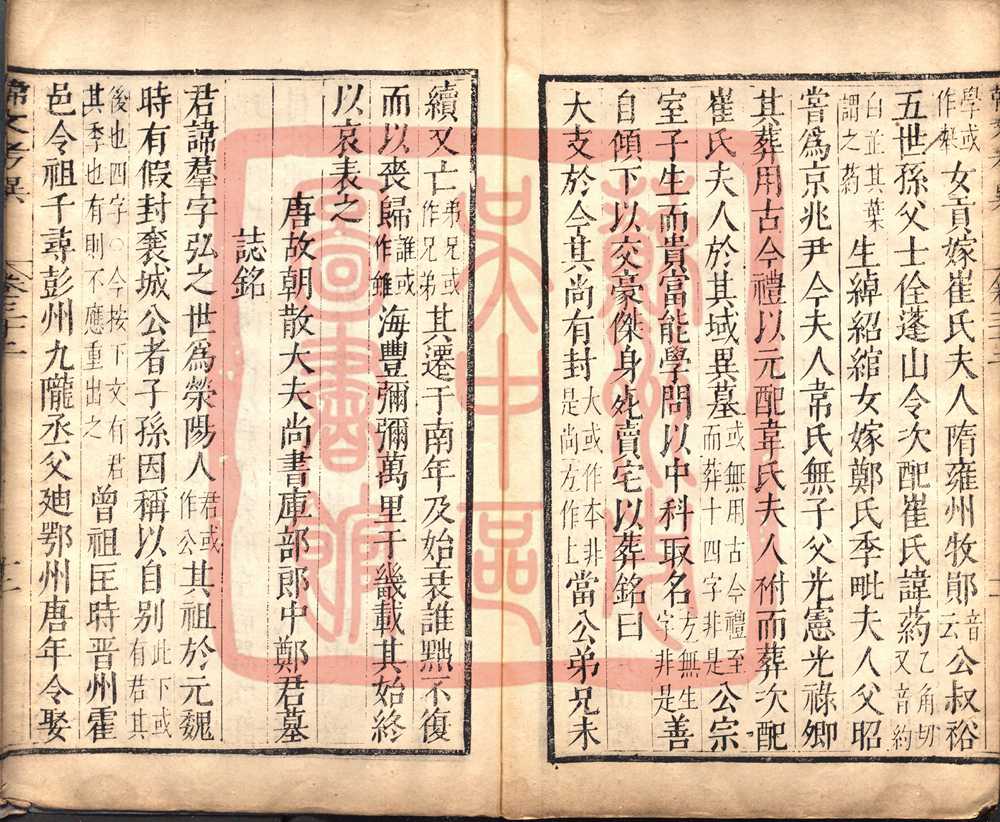 學或作舉女貢嫁崔氏夫人隋雍州牧鄖音云公叔裕
五世孫父士佺蓬山令次配崔氏諱葯乙角切又音約
白芷其葉謂之葯生綽紹綰女嫁鄭氏季毗夫人父昭
嘗爲京兆尹今夫人韋氏無子父光憲光祿卿
其葬用古今禮以元配韋氏夫人祔而葬次配
崔氏夫人於其域異墓或無用古今禮至而葬十四字非是公宗
室子生而貴富能學問以中科取名方無生字非是善
自傾下以交豪傑身死賣宅以葬銘曰
大支於今其尚有封大或作本非是尚方作上當公弟兄未
續又亡弟兄或作兄弟其遷于南年及始衰誰黜不復
而以喪歸誰或作雖海豐彌彌萬里于畿載其始終
以哀表之
唐故朝散大夫尚書庫部郎中鄭君墓
誌銘
君諱羣字弘之世爲滎陽人君或作公其祖於元魏
時有假封襄城公者子孫因稱以自别此下或有君其
後也四字○今按下文有君其季也有則不應重出之曾祖匡時晉州霍
邑令祖千尋彭州九隴丞父廸鄂州唐年令娶
韓文考異
卷三十二